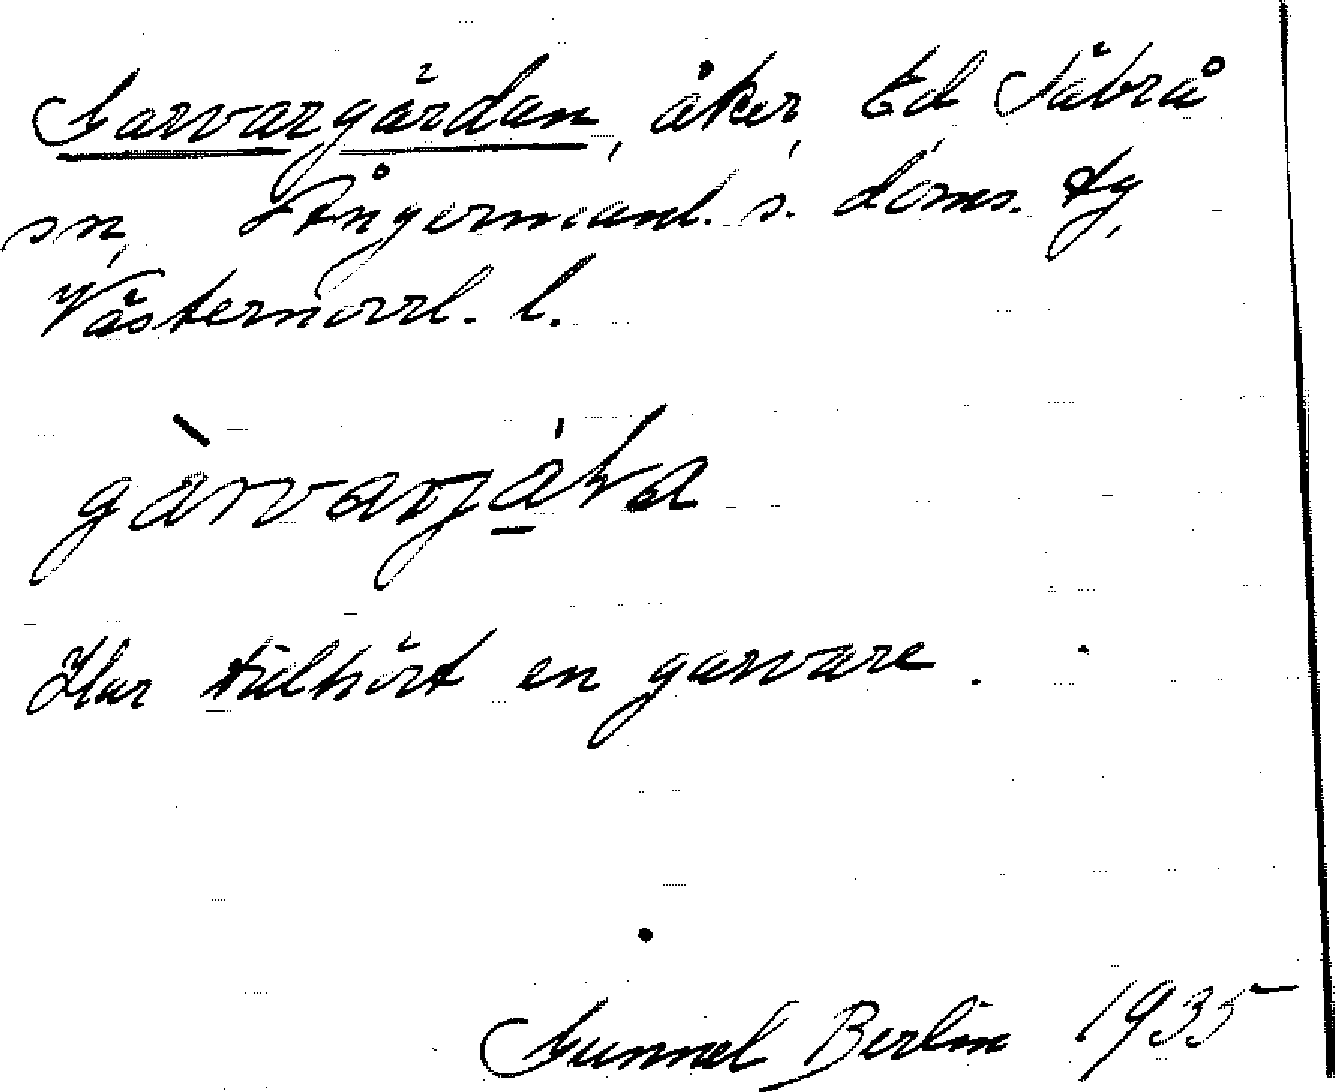 Garvargärdan, åker, Ed Säbrå
sn, Ångermanl. s. doms. tg,
Västernorrl. l.
Har tillhört en garvare.
Gunnel Berlin 1935